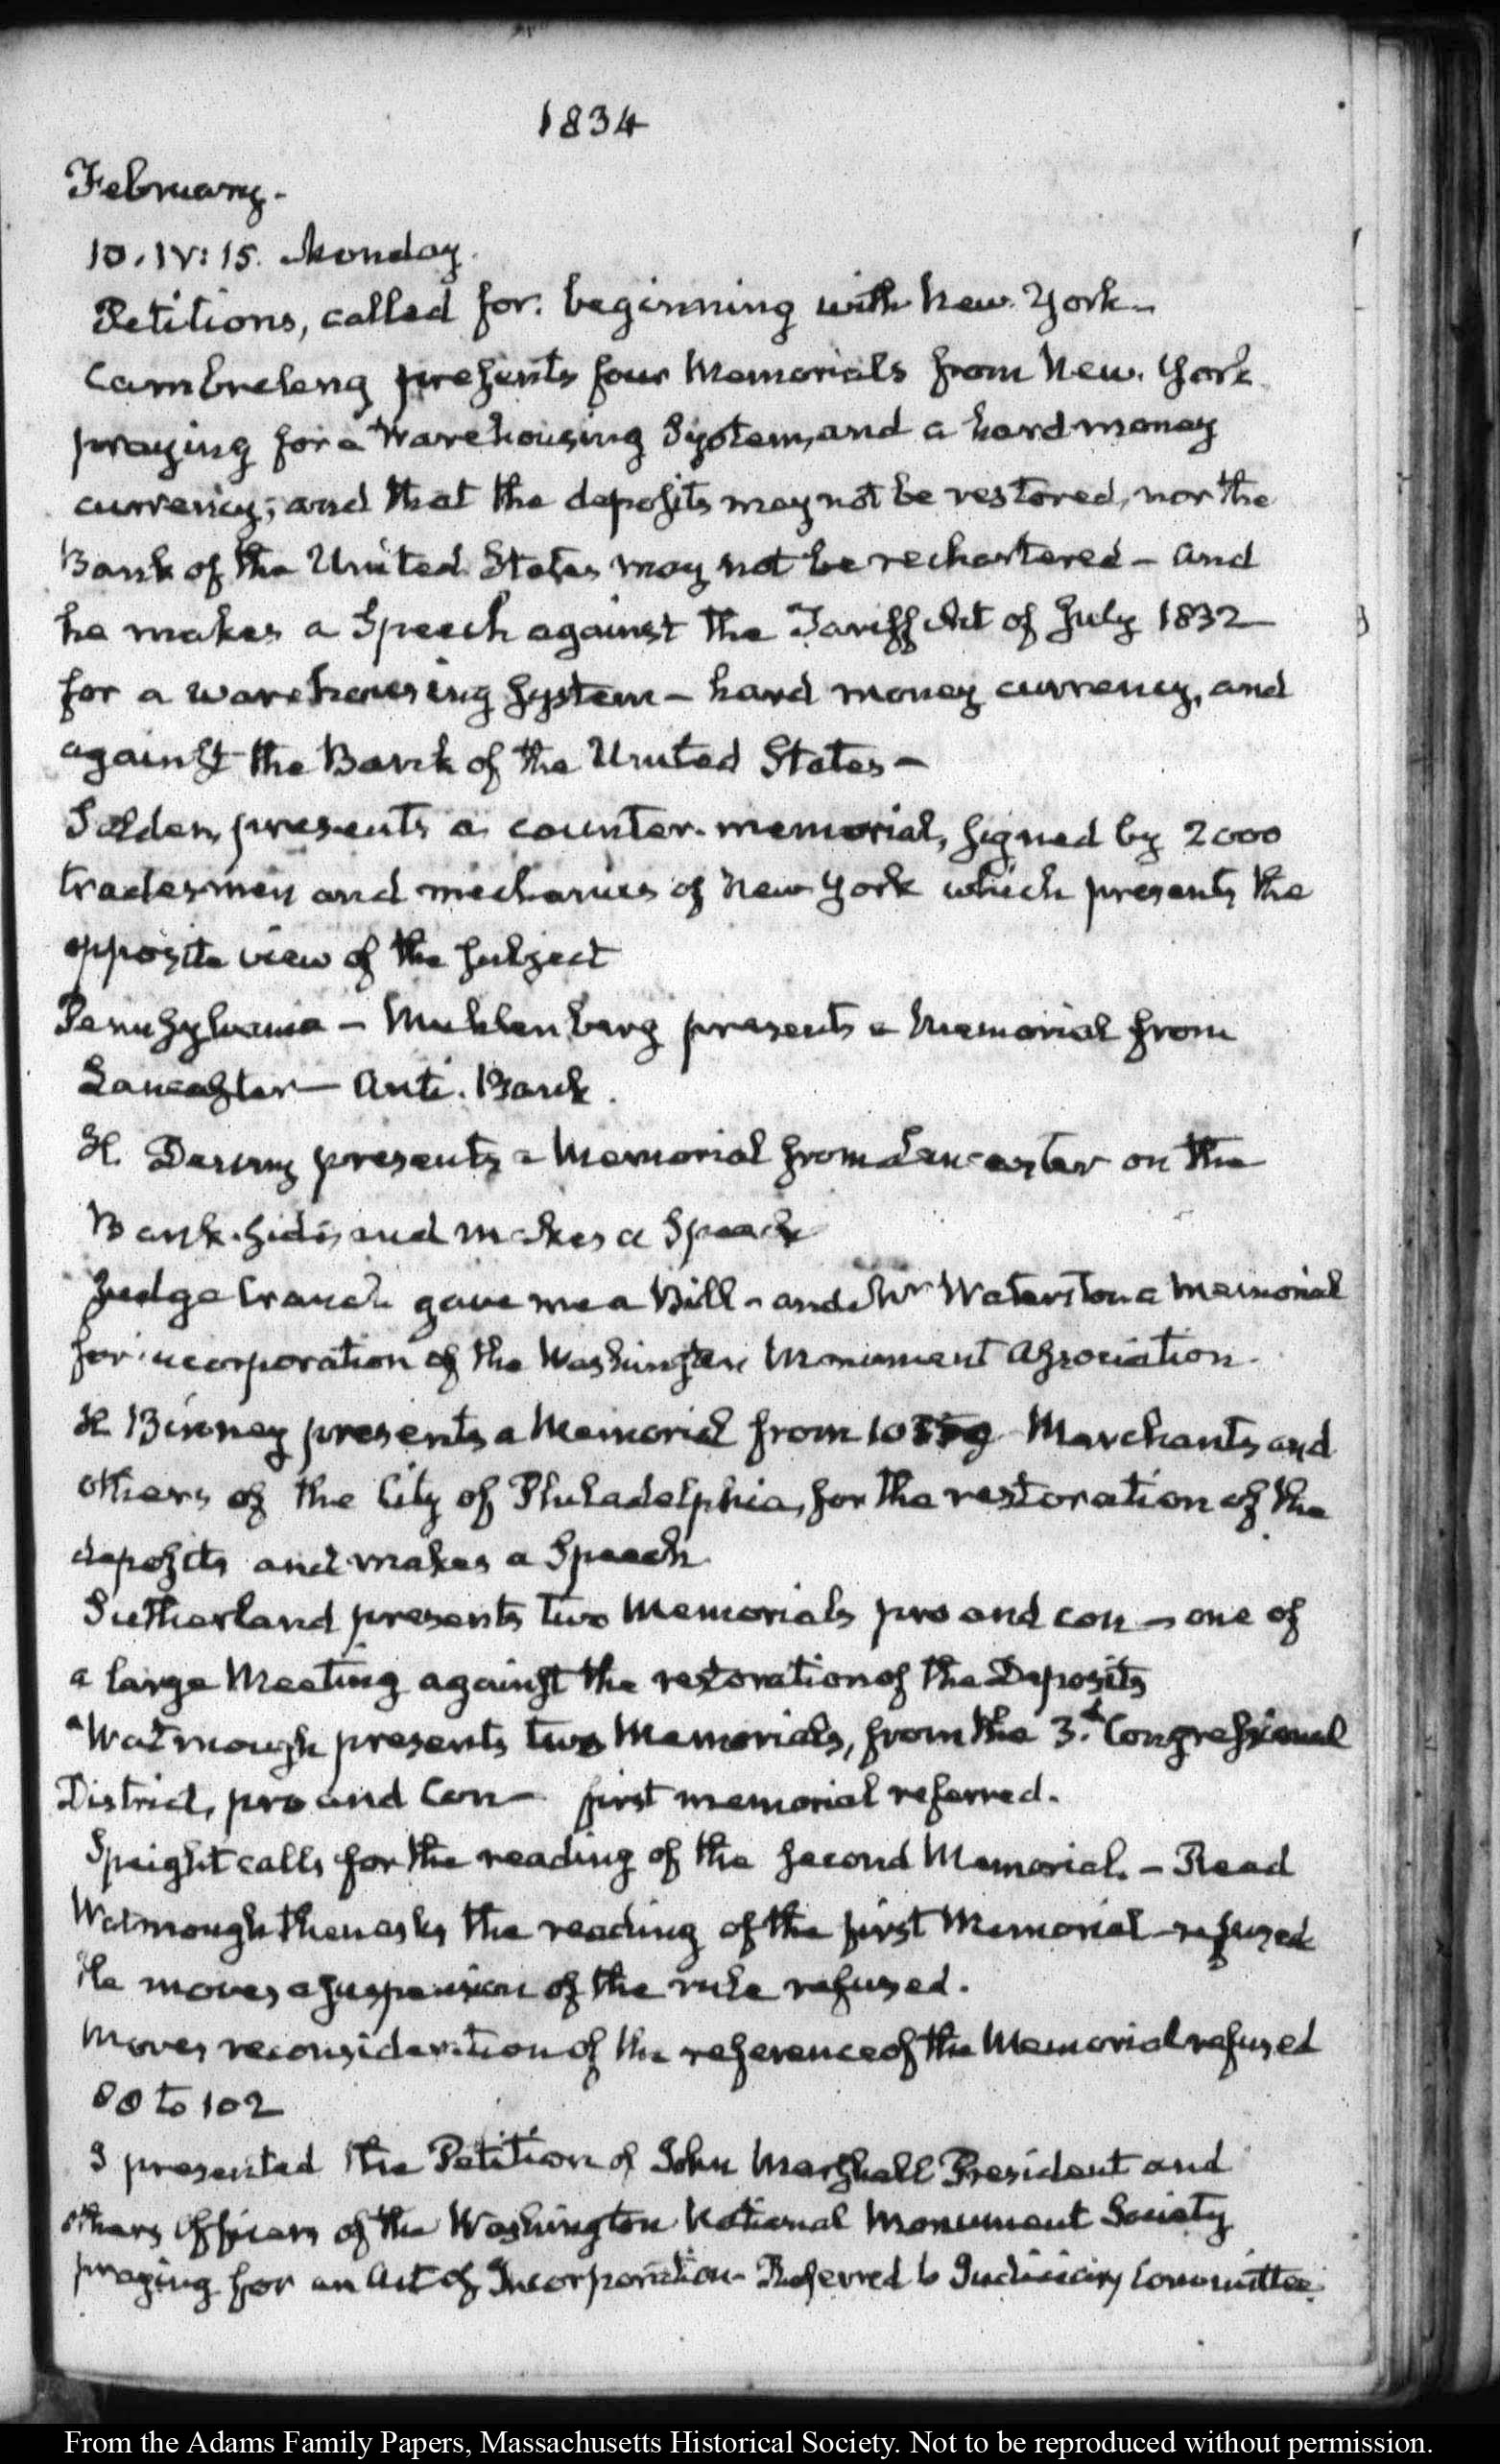 1834
February.
10. IV: 15. Monday.
Petitions, called for. beginning with New York—
Cambreleng presents four Memorials from New York
praying for a Warehousing System, and a hard money
currency; and that the deposits may not be restored, nor the
Bank of the United States may not be rechartered — and
he makes a Speech against the Tariff Act of July 1832
for a warehousing system — hard money currency, and
against the Bank of the United States —
Selden, presents a counter-memorial, signed by 2000
tradesmen and mechanics of New York which presents the
opposite view of the subject
Pennsylvania — Muhlenberg presents a Memorial from
Lancaster — Anti-Bank.
H. Denny presents a Memorial from Lancaster on the
Bank-side, and makes a Speech
Judge Cranch gave me a Bill — and Mr Waterston a Memorial
for incorporation of the Washington Monument Association.
H Binney presents a Memorial from Merchants and
others of the City of Philadelphia, for the restoration of the
deposits and makes a Speech
Sutherland presents two Memorials pro and con — one of
a large Meeting against the restoration of the Deposits
Watmough presents two Memorials, from the 3.d Congressional
District, pro and Con — first memorial referred.
Speight calls for the reading of the second Memorial. — Read
Watmough then asks the reading of the first Memorial — refused
He moves a suspension of the rule refused.
Moves reconsideration of the reference of the Memorial refused
to 102
I presented the Petition of John Marshall President and
others officers of the Washington National Monument Society
praying for an Act of Incorporation — Referred to Judiciary Committee.
From the Adams Family Papers, Massachusetts Historical Society. Not to be reproduced without permission.